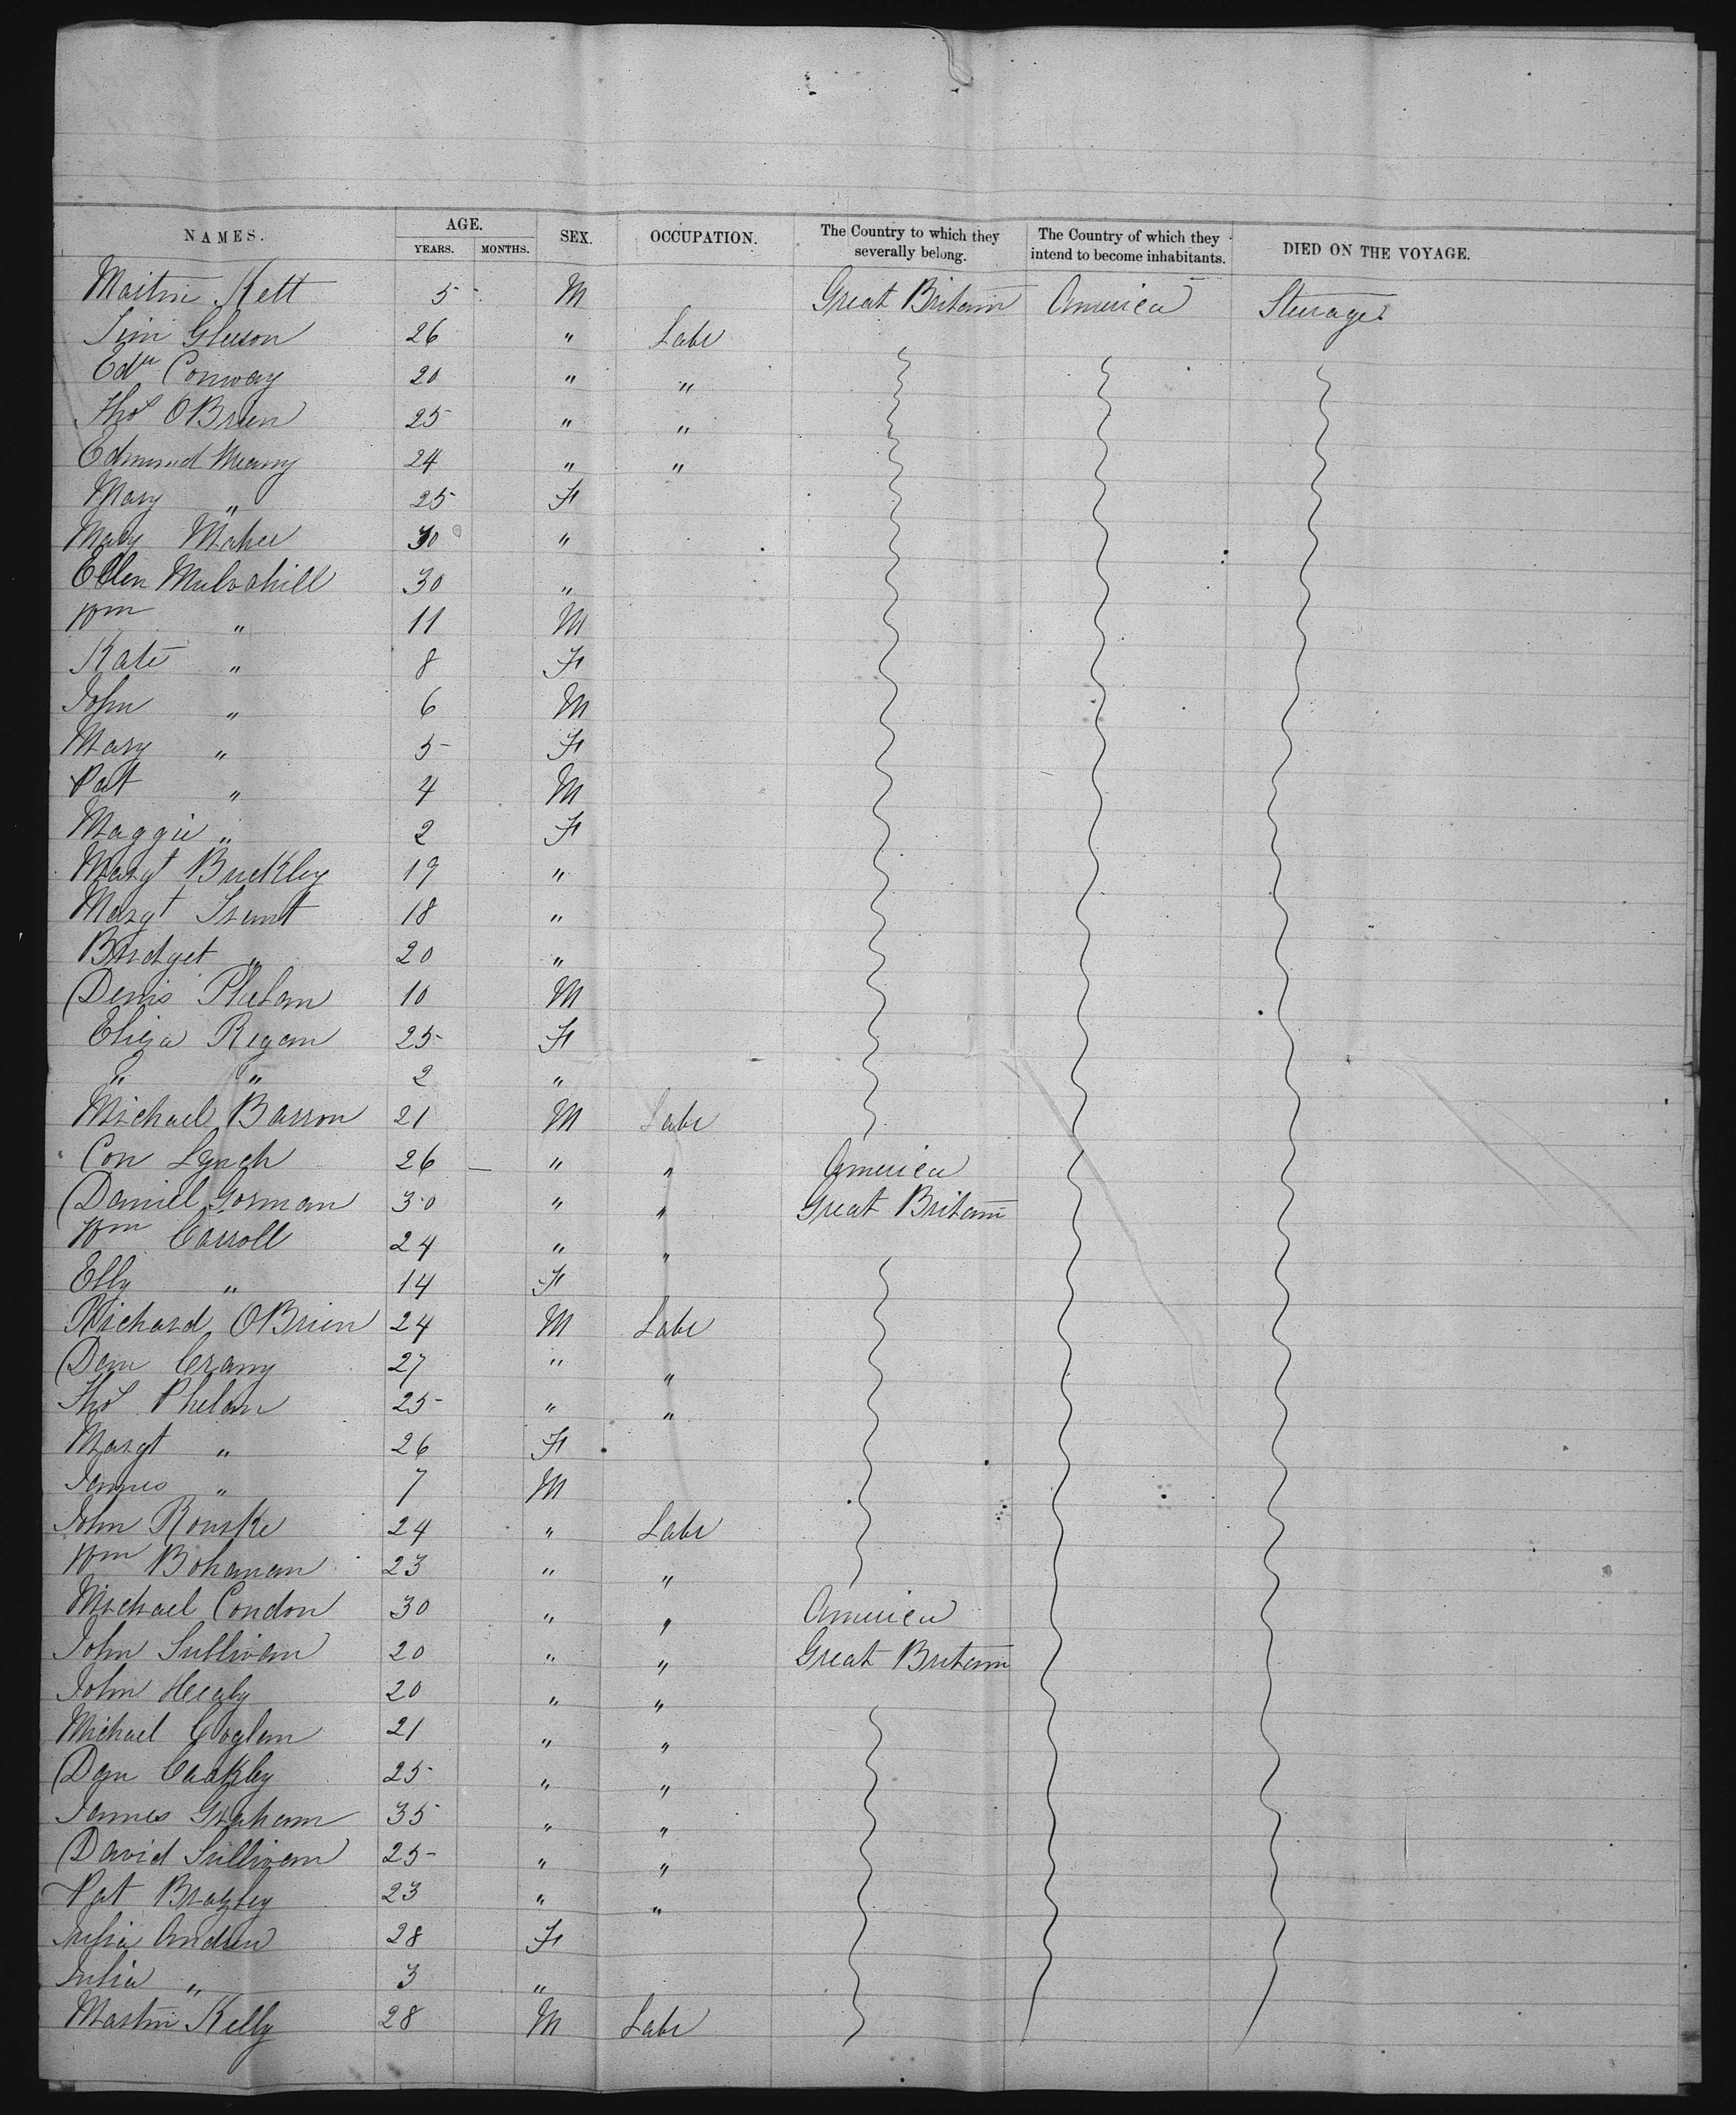 NAMES. AGE. YEARS. MONTHS. SEX. OCCUPATION. The Country to which they severally belong. The Country of which they intend to become inhabitants. DIED ON THE VOYAGE.
Martin Kett 5 M Great Britain America Steerage
Jim Gleeson 26 " Labr
Edw Conway 20 " "
Thos OBrien 25 " "
Edmund Meany 24 " "
Mary " 25 F
Mary Maher 30 "
Ellen Mulvahill 30 "
Wm " 11 M
Kate " 8 F
John " 6 M
Mary " 5 F
Pat " 4 M
Maggie " 2 F
Margt Buckley 19 "
Margt 18 "
Bridget " 20 "
Denis Phelan 10 M
Eliza Regan 25 F
" " 2 "
Michael Barron 21 M Labr
Con Lynch 26 " " America
Daniel Gorman 30 " " Great Britain
Wm Carroll 24 " "
Elly " 14 F
Richard OBrien 24 M Labr
Dan Crany 27 " "
Thos Phelan 25 " "
Margt " 26 F
James " 7 M
John Rourke 24 " Labr
Wm Bohanan 23 " "
Michael Condon 30 " " America
John Sullivan 20 " " Great Britain
John Healy 20 " "
Michael Coglan 21 " "
Dan Coakley 25 " "
James Graham 35 " "
David Sullivan 25 " "
Pat 23 " "
Julia Andrew 28 F
Julia " 3 "
Martin Kelly 28 M Labr